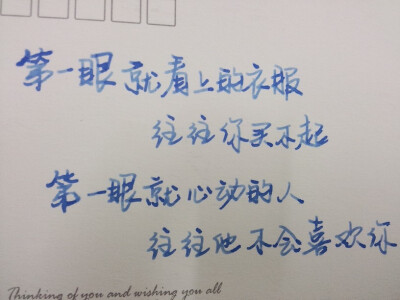 第一眼就看上的衣服
往往你买不起
第一眼就心动的人
往往他不会喜欢你
Thinking of you and wishing you all